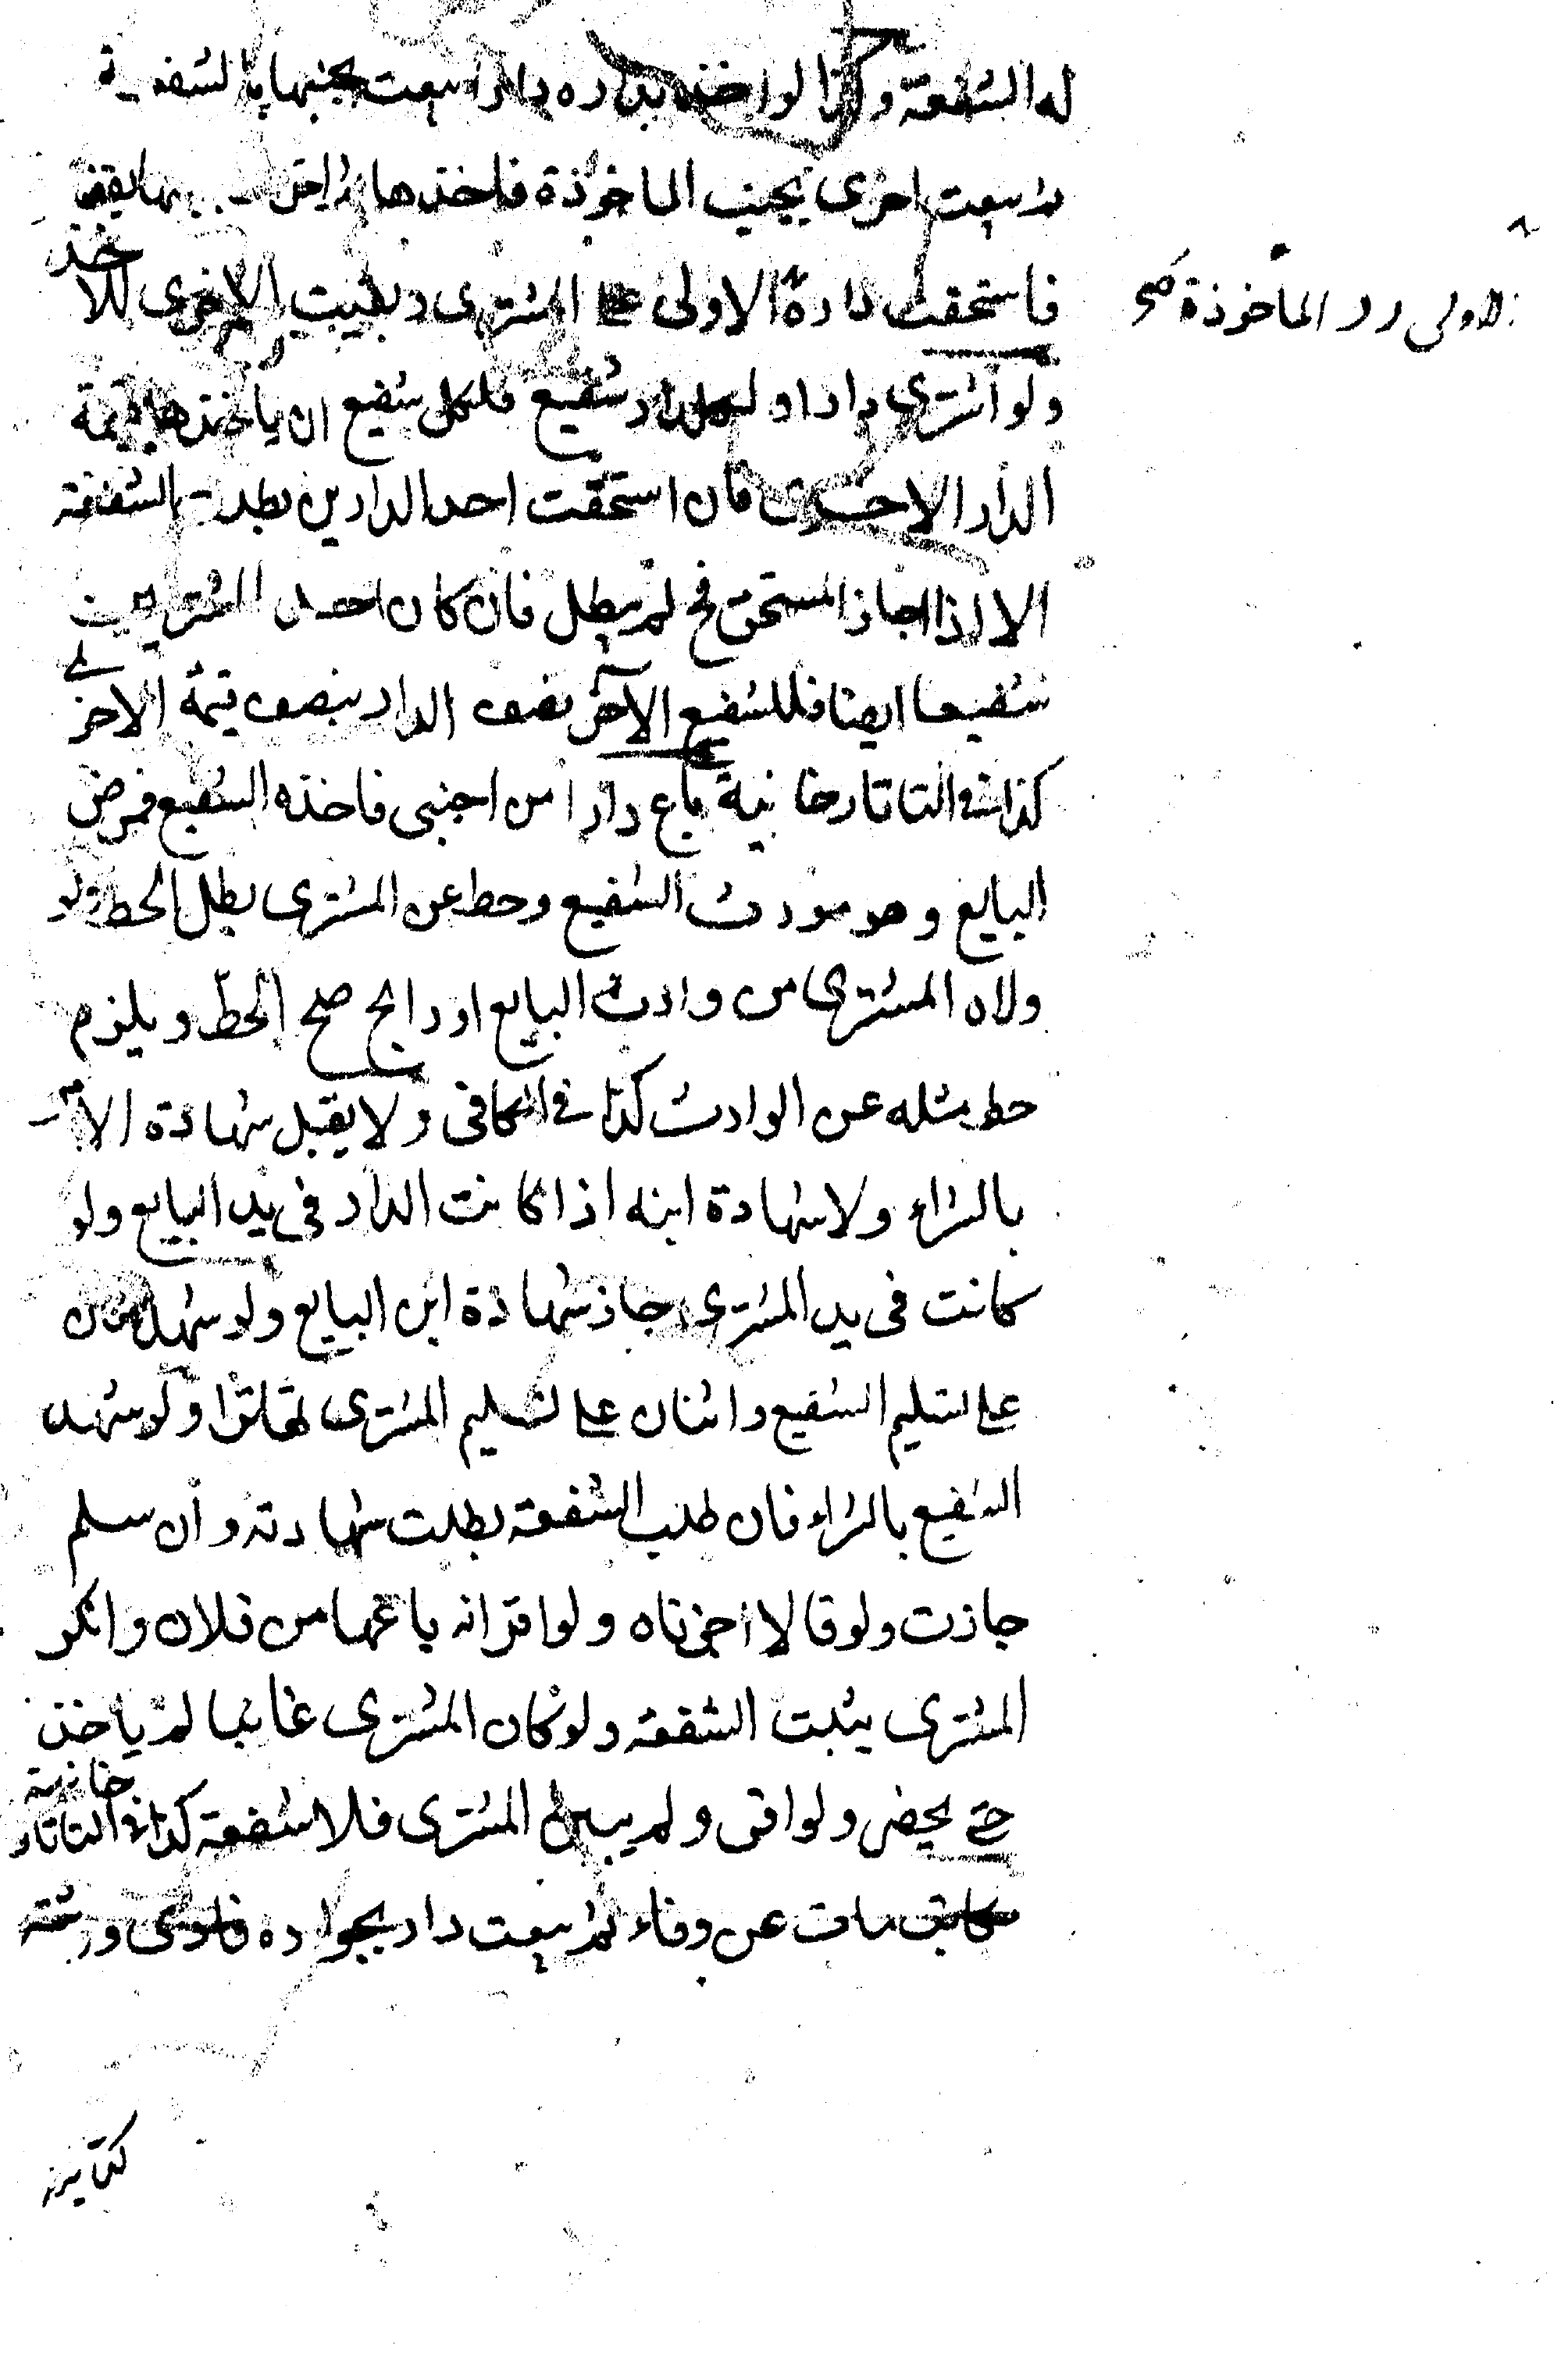 له الشفعة وكذا لو اخذ بداره دارا بيعت بجنبها بالشفعة
ثم بيعت اخرى بجنب الماخوذة فاخذها ثم
فاستحقت داره الاولى على المشترى وبقيت الاخرى للآخذ
الاولى رد الماخوذة صح
ولو اشترى دارا ولكل دار شفيع فلكل شفيع ان ياخذها بقيمة
الدار الاخرى فان استحقت احد الدارين بطلت الشفعة
الا اذا اجاز المستحق فح لم يبطل فان كان احد المشتريين
شفيعا ايضا فللشفيع الآخر نصف الدار بنصف قيمة الاخرى
كذا فى التاتارخانية باع دارا من اجنبى فاخذه الشفيع فمرض
البايع وهو مورث الشفيع وحط عن المشترى بطل الحط ولو
ولاه المشترى من وارث البايع او رابح صح الحطّ ويلزم
حط مثله عن الوارث كذا فى الكافى ولا يقبل شهادة الآمر
بالشراء ولا شهادة ابنه اذا كانت الدار فى يد البايع ولو
كانت فى يد المشترى جاز شهادة ابن البايع ولو شهد اثنان
على تسليم الشفيع واثنان على تسليم المشترى ولو شهد
الشفيع بالشراء فان طلب الشفعة بطلت شهادته وان سلم
جازت ولو قالا اجزناه ولو اقر انه باعها من فلان وانكر
المشترى يثبت الشفعة ولو كان المشترى غائبا لم ياخذ
حتى يحضر ولو اقر ولم يبين المشترى فلا شفعة كذا فى التاتارخانية
مكاتب مات عن وفاء ثم بيعت دار بجواره فادى ورثته
كتابته